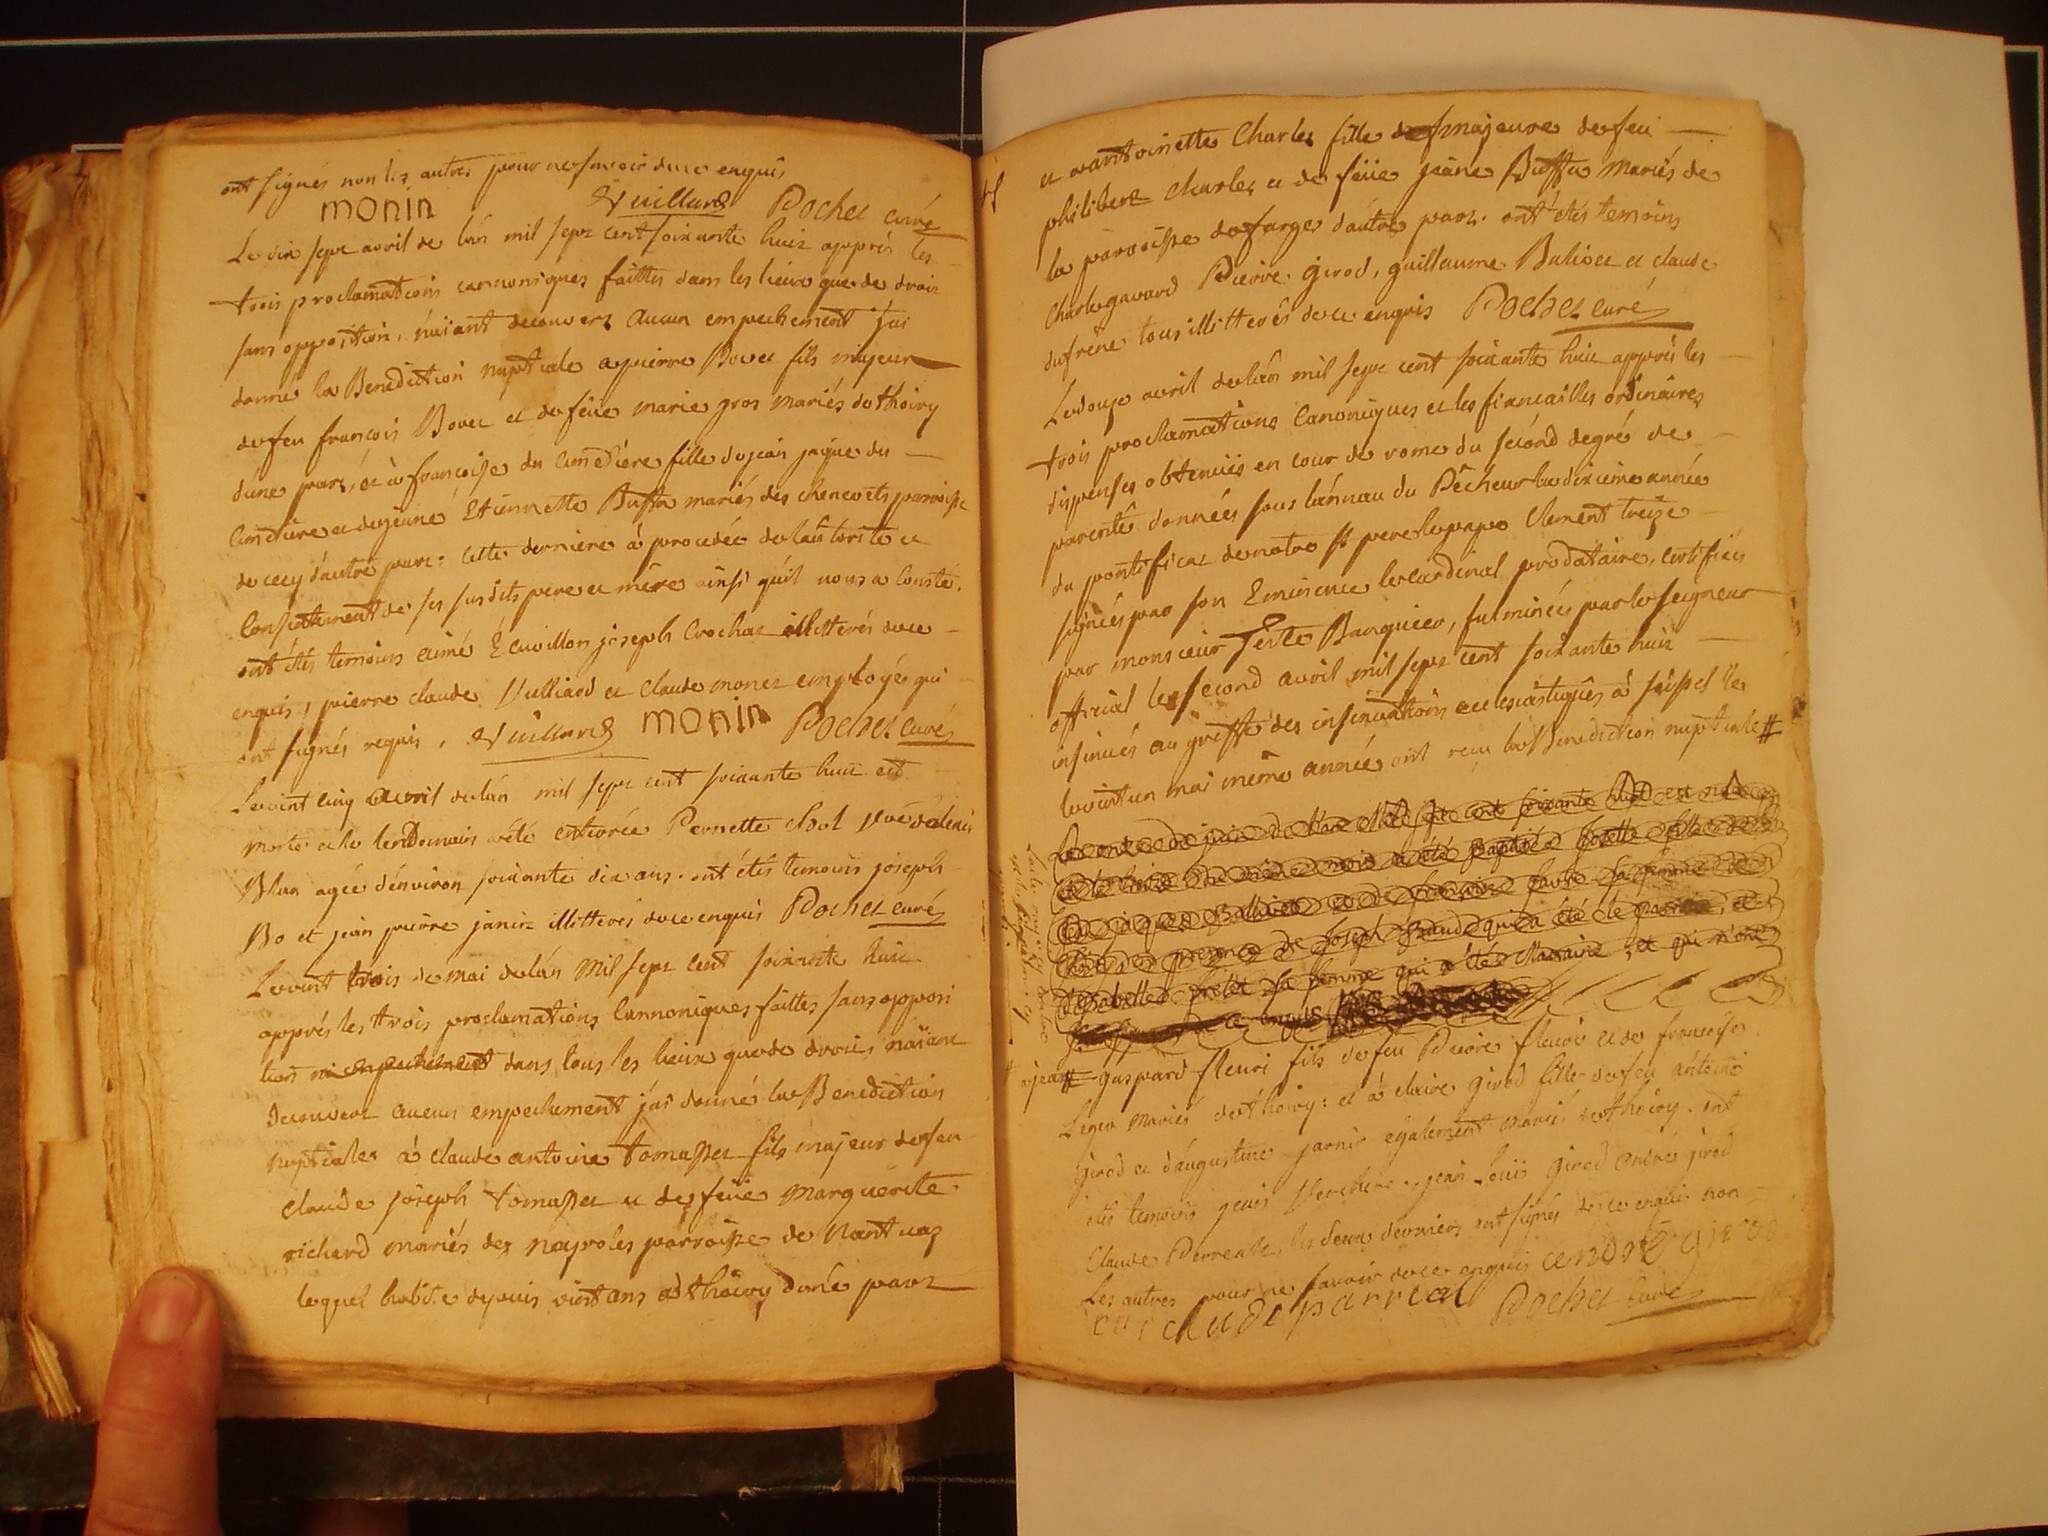 ont signés non les autres pour ne savoir de ce enquis
monin Vuillard Pochet curé
Le dix sept avril de l'an mil sept cent soixante huit apprés les
trois proclamations cannoniques faittes dans les lieux que de droit
sans opposition, n'aiant decouvert aucun empechement j'ai
donné la Benediction nuptiale a pierre Bovet fils majeur
de feu françois Bovet et de feüe marie gros mariés de thoiry
d'une part, et à françoise du cimetière fille de jean jaque du
cimetière et de jeune Etiennette Buffa mariés des chenevets parroisse
de cecy d'autre part: cette derniere à procedée de l'autorité et
consentement de ses susdits pere et mère ainsi qu'il nous a consté.
ont étés temoins aimé Ecuvillon joseph Crochat illitterés de ce
enquis, pierre claude Vulliard et claude monet employés qui
ont signés requis. Vuillard monin Pochet curé
Le vint cinq avril de l'an mil sept cent soixante huit est
morte et le lendemain a été enterrée Pernette
Blan agée d'environ soixante dix ans. ont étés temoins joseph
Bo et jean pierre janin illitterés de ce enquis Pochet curé
Le vint trois de mai de l'an mil sept cent soixante huit
apprés les trois proclamations cannoniques faittes sans opposi
tion ni empechement dans tous les lieux que de droit n'aïant
decouvert aucun empechement j'ai donné la Benediction
nuptiale à claude antoine tomasset fils majeur de feu
claude joseph tomasset et de feüe marguerite
richard mariés des neyroles parroisse de Nantuaz
lequel habite depuis vint ans à thoiry d'une part
et antoinette Charles fille majeure de feu
philibert Charles et de feüe jeâne Buffa mariés de
la parroisse de farges d'autre part. ont étés temoins
Charle gavard Pierre girod, guillaume Balivet et claude
dufrene tous illitterés de ce enquis Pochet curé
Le douze avril de l'an mil sept cent soixante huit apprés les
trois proclamations canoniques et les fiancailles ordinaires
dispenses obtenües en cour de rome du second degré de
parenté données sous l'anneau du Pêcheur la dixieme année
du pontificat de notre st pere le pape Clement treize
signées par son Eminence le cardinal prodataire, certifiées
par monsieur Teste Banquier, fulminées par le seigneur
official le second avril mil sept cent soixante huit
insinuées au greffe des insinuations ecclesiastiques à seissel le
vint un mai même année ont reçu la Benediction nuptiale #
# gaspard fleuri fils de feu Pierre fleuri et de françoise
Leger mariés de thoiry: et à claire girod fille de feu antoine
girod et d'augustine janin egalement mariés de thoiry. ont
étés temoins jean Verchere, jean Loüis girod andré girod
Claude Perreal les deux derniers ont signés de ce enquis non
Les autres pour ne savoir de ce enquis andré girod
claude parreal Pochet curé